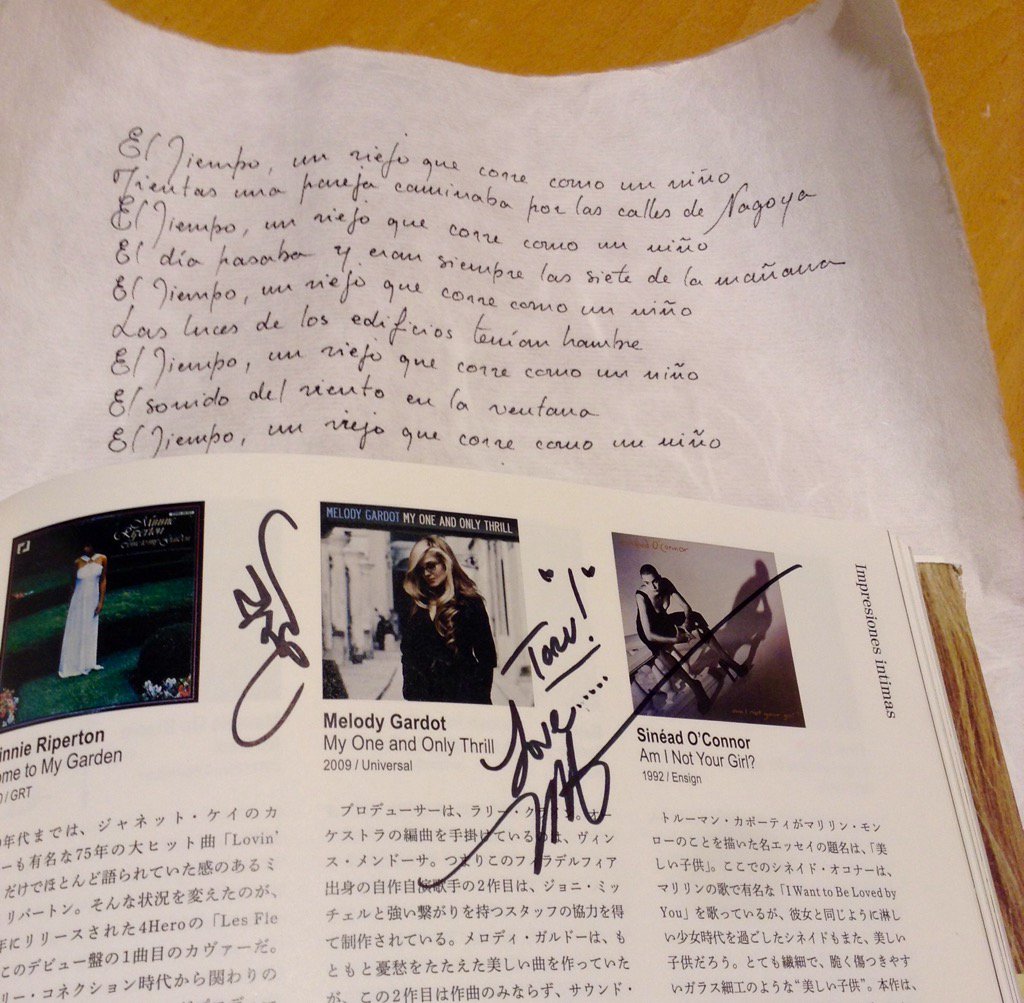 El Tiempo, un viejo que corre como un niño
Mientas una pareja caminaba por las calles de Nagoya
El Tiempo, un viejo que corre como un niño
El día pasaba y eran siempre las siete de la mañana
El Tiempo, un viejo que corre como un niño
Las luces de los edificios tenían hambre
El Tiempo, un viejo que corre como un niño
El sonido del viento en la ventana
El Tiempo, un viejo que corre como un niño
Minnie
Riperton
Come to my Garden
innie Riperton
ome to My Garden
/ GRT
年代までは、ジャネット・ケイのカ
ーも有名な75年の大ヒット曲「Lovin'
だけでほとんど語られていた感のあるミ
リパートン。そんな状況を変えたのが、
年にリリースされた4Heroの「Les Fle
このデビュー盤の1曲目のカヴァーだ。
リー・コネクション時代から関わりの
MELODY GARDOT MY ONE AND ONLY THRILL
Melody Gardot
My One and Only Thrill
2009 / Universal
Toru!
Love......
プロデューサーは、ラリー・ク
ケストラの編曲を手掛けているのは、ヴィン
ス・メンドーサ。つまりこのフィラデルフィア
出身の自作自演歌手の2作目は、ジョニ・ミッ
チェルと強い繋がりを持つスタッフの協力を得
て制作されている。メロディ・ガルドーは、も
ともと憂愁をたたえた美しい曲を作っていた
が、この2作目は作曲のみならず、サウンド・
Sinéad O'Connor
am i not your girl?
Sinéad O'Connor
Am I Not Your Girl?
1992 / Ensign
トルーマン・カポーティがマリリン・モン
ローのことを描いた名エッセイの題名は、「美
しい子供」。ここでのシネイド・オコナーは、
マリリンの歌で有名な「I Want to Be Loved by
You」を歌っているが、彼女と同じように淋し
い少女時代を過ごしたシネイドもまた、美しい
子供だろう。とても繊細で、脆く傷つきやす
いガラス細工のような“美しい子供”。本作は、
Impresiones intimas